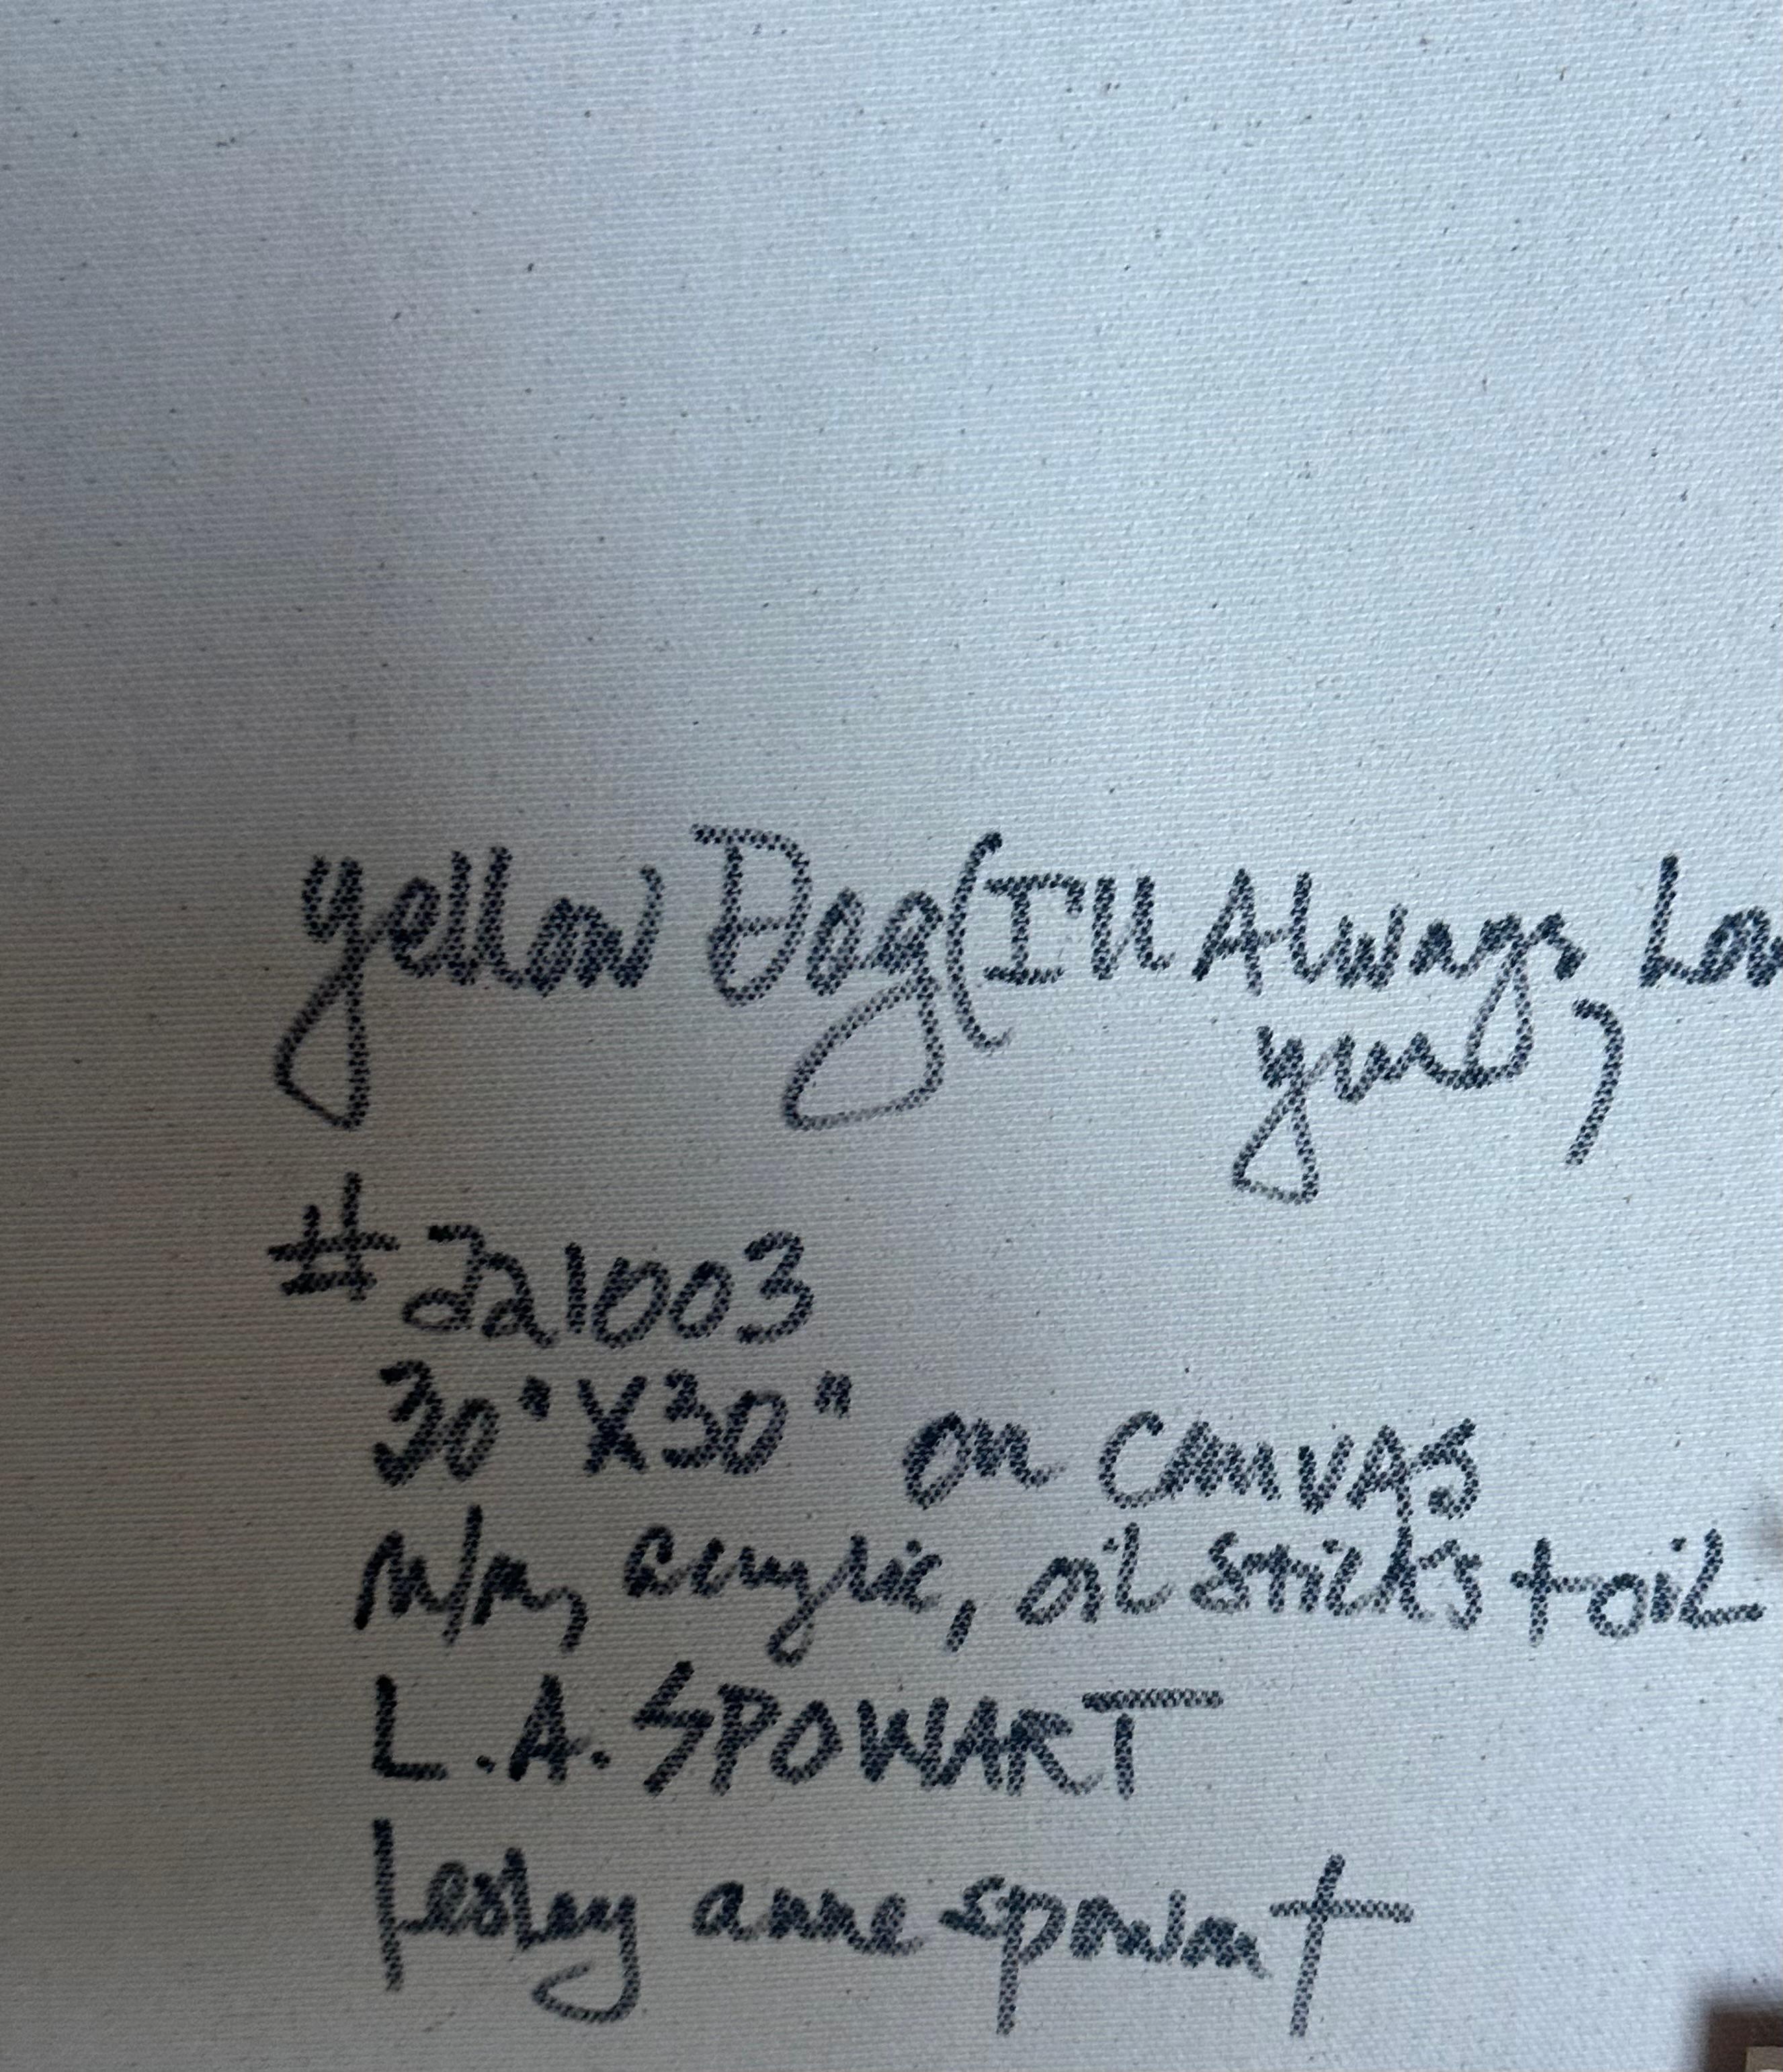 yellow Dog (I'll Always Lov
you)
#221003
30" X 30" on CANVAS
m/m, acrylic, oil sticks + oil
L.A. SPOWART
Lesley anne spowart